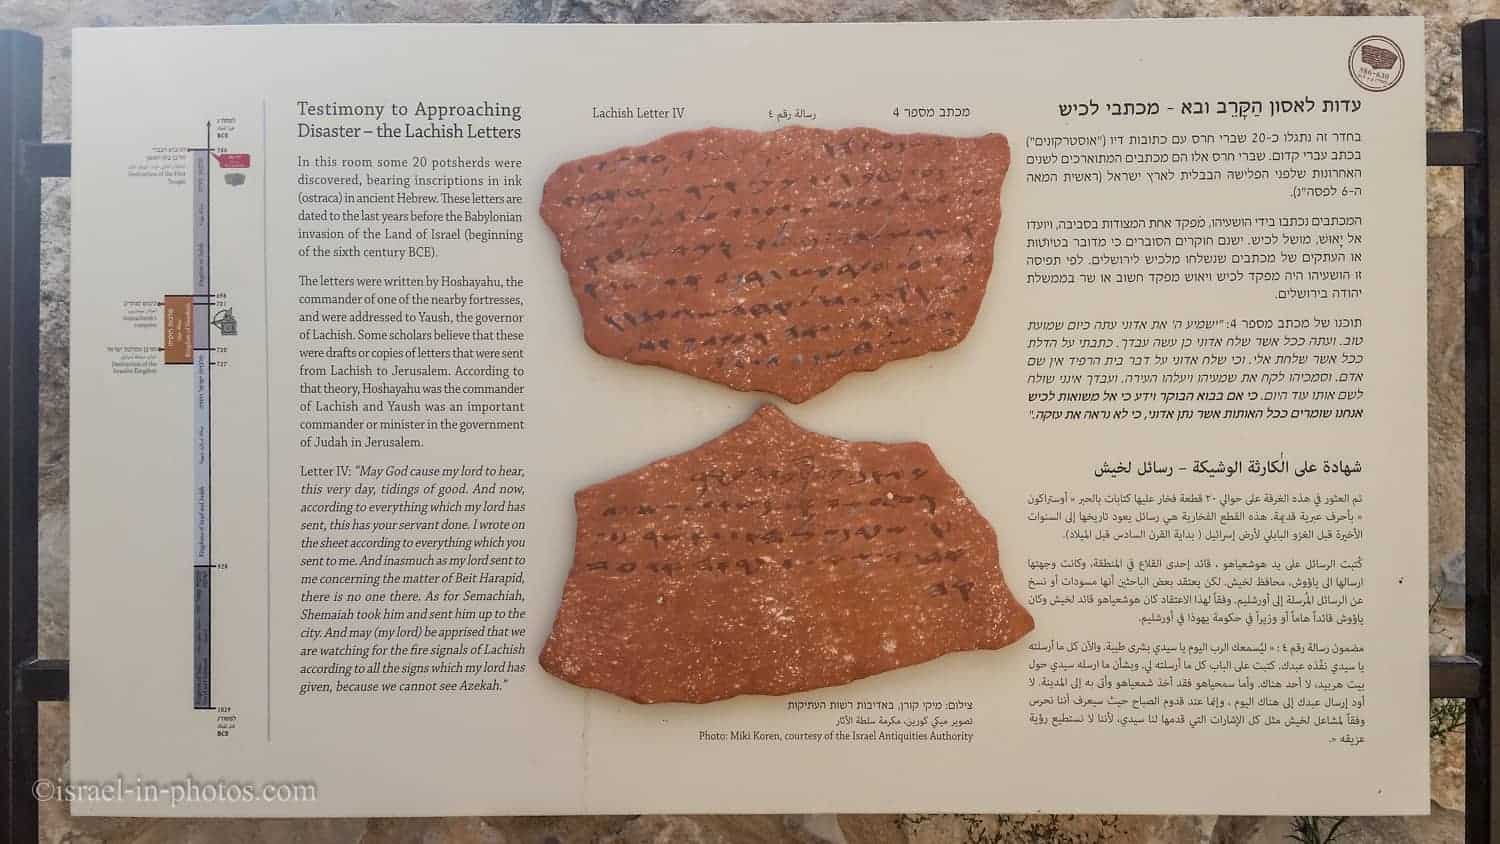 Testimony to Approaching
Disaster – the Lachish Letters
In this room some 20 potsherds were
discovered, bearing inscriptions in ink
(ostraca) in ancient Hebrew. These letters are
dated to the last years before the Babylonian
invasion of the Land of Israel (beginning
of the sixth century BCE).
The letters were written by Hoshayahu, the
commander of one of the nearby fortresses,
and were addressed to Yaush, the governor
of Lachish. Some scholars believe that these
were drafts or copies of letters that were sent
from Lachish to Jerusalem. According to
that theory, Hoshayahu was the commander
of Lachish and Yaush was an important
commander or minister in the government
of Judah in Jerusalem.
Letter IV: "May God cause my lord to hear,
this very day, tidings of good. And now,
according to everything which my lord has
sent, this has your servant done. I wrote on
the sheet according to everything which you
sent to me. And inasmuch as my lord sent to
me concerning the matter of Beit Harapid,
there is no one there. As for Semachiah,
Shemaiah took him and sent him up to the
city. And may (my lord) be apprised that we
are watching for the fire signals of Lachish
according to all the signs which my lord has
given, because we cannot see Azekah."
Lachish Letter IV
رسالة رقم ٤
מכתב מספר 4
צילום: מיקי קורן, באדיבות רשות העתיקות
تصوير ميكي كورين، مكرمة سلطة الآثار
Photo: Miki Koren, courtesy of the Israel Antiquities Authority
עדות לאסון הַקָרֵב ובא - מכתבי לכיש
בחדר זה נתגלו כ-20 שברי חרס עם כתובות דיו ("אוסטרקונים")
בכתב עברי קדום. שברי חרס אלו הם מכתבים המתוארכים לשנים
האחרונות שלפני הפלישה הבבלית לארץ ישראל (ראשית המאה
ה-6 לפסה"נ).
המכתבים נכתבו בידי הושעיהו, מפקד אחת המצודות בסביבה, ויועדו
אל יָאוּש, מושל לכיש. ישנם חוקרים הסוברים כי מדובר בטיוטות
או העתקים של מכתבים שנשלחו מלכיש לירושלים. לפי תפיסה
זו הושעיהו היה מפקד לכיש ויאוש מפקד חשוב או שר בממשלת
יהודה בירושלים.
תוכנו של מכתב מספר 4: "ישמיע ה' את אדוני עתה כיום שמועת
טוב. ועתה ככל אשר שלח אדוני כן עשה עבדך. כתבתי על הדלת
ככל אשר שלחת אלי. וכי שלח אדוני על דבר בית הרפיד אין שם
אדם. וסמכיהו לקח את שמעיהו ויעלהו העירה. ועבדך אינני שולח
לשם אותו עוד היום. כי אם בבוא הבוקר וידע כי אל משואות לכיש
אנחנו שומרים ככל האותות אשר נתן אדוני, כי לא נראה את עזקה."
شهادة على الُكارثة الوشيكة – رسائل لخيش
تم العثور في هذه الغرفة على حوالي ٢٠ قطعة فخار عليها كتابات بالحبر « أوستراكون
» بأحرف عبرية قديمة. هذه القطع الفخارية هي رسائل يعود تاريخها إلى السنوات
الأخيرة قبل الغزو البابلي لأرض إسرائيل ( بداية القرن السادس قبل الميلاد).
كُتبت الرسائل على يد هوشعياهو ، قائد إحدى القلاع في المنطقة، وكانت وجهتها
ارسالها الى ياؤوش، محافظ لخيش. لكن يعتقد بعض الباحثين أنها مسودات أو نسخ
عن الرسائل المُرسلة إلى أورشليم. وفقاً لهذا الاعتقاد كان هوشعياهو قائد لخيش وكان
ياؤوش قائداً هاماً أو وزيراً في حكومة يهوذا في أورشليم.
مضمون رسالة رقم ٤ : « ليُسمعك الرب اليوم يا سيدي بشرى طيبة. والآن كل ما أرسلته
يا سيدي نفّذه عبدك. كتبت على الباب كل ما أرسلته لي. وبشأن ما ارسله سيدي حول
بيت هربيد، لا أحد هناك. وأما سمخياهو فقد أخذ شمعياهو وأتى به إلى المدينة. لا
أود إرسال عبدك إلى هناك اليوم ، وإنما عند قدوم الصباح حيث سيعرف أننا نحرس
وفقاً لمشاعل لخيش مثل كل الإشارات التي قدمها لنا سيدي، لأننا لا نستطيع رؤية
عزيقه ».
BCE
Destruction of the First
Temple
Destruction of the
Israelite Kingdom
BCE
©israel-in-photos.com